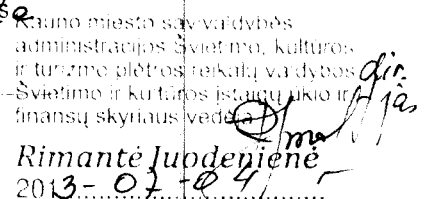 Kauno miesto savivaldybės
administracijos Švietimo, kultūros
ir turizmo plėtros reikalų valdybos
Švietimo ir kultūros įstaigų ūkio ir
finansų skyriaus vedėja
Rimantė Juodenienė
2013-07-04